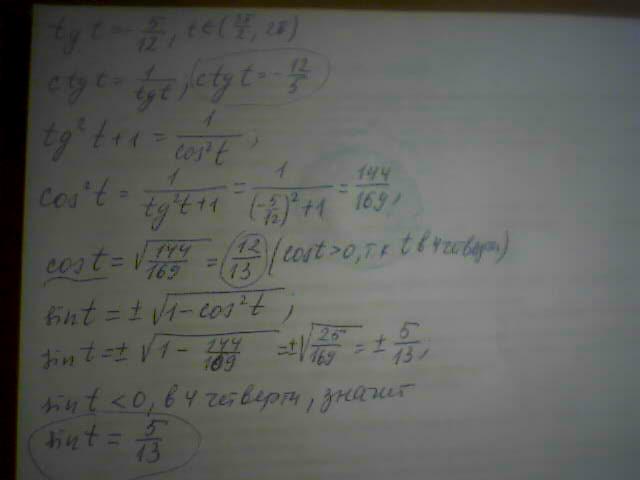 tg t = -5/12, t ∈ (3π/2, 2π)
ctg t = 1/tg t; ctg t = -12/5
tg² t + 1 = 1/cos² t;
cos² t = 1/(tg² t + 1) = 1/((-5/12)² + 1) = 144/169;
cos t = √(144/169) = 12/13 (cos t > 0, т.к t в 4 четверти)
sin t = ± √(1 - cos² t);
sin t = ± √(1 - 144/169) = ± √(25/169) = ± 5/13;
sin t < 0, в 4 четверти, значит
sin t = 5/13